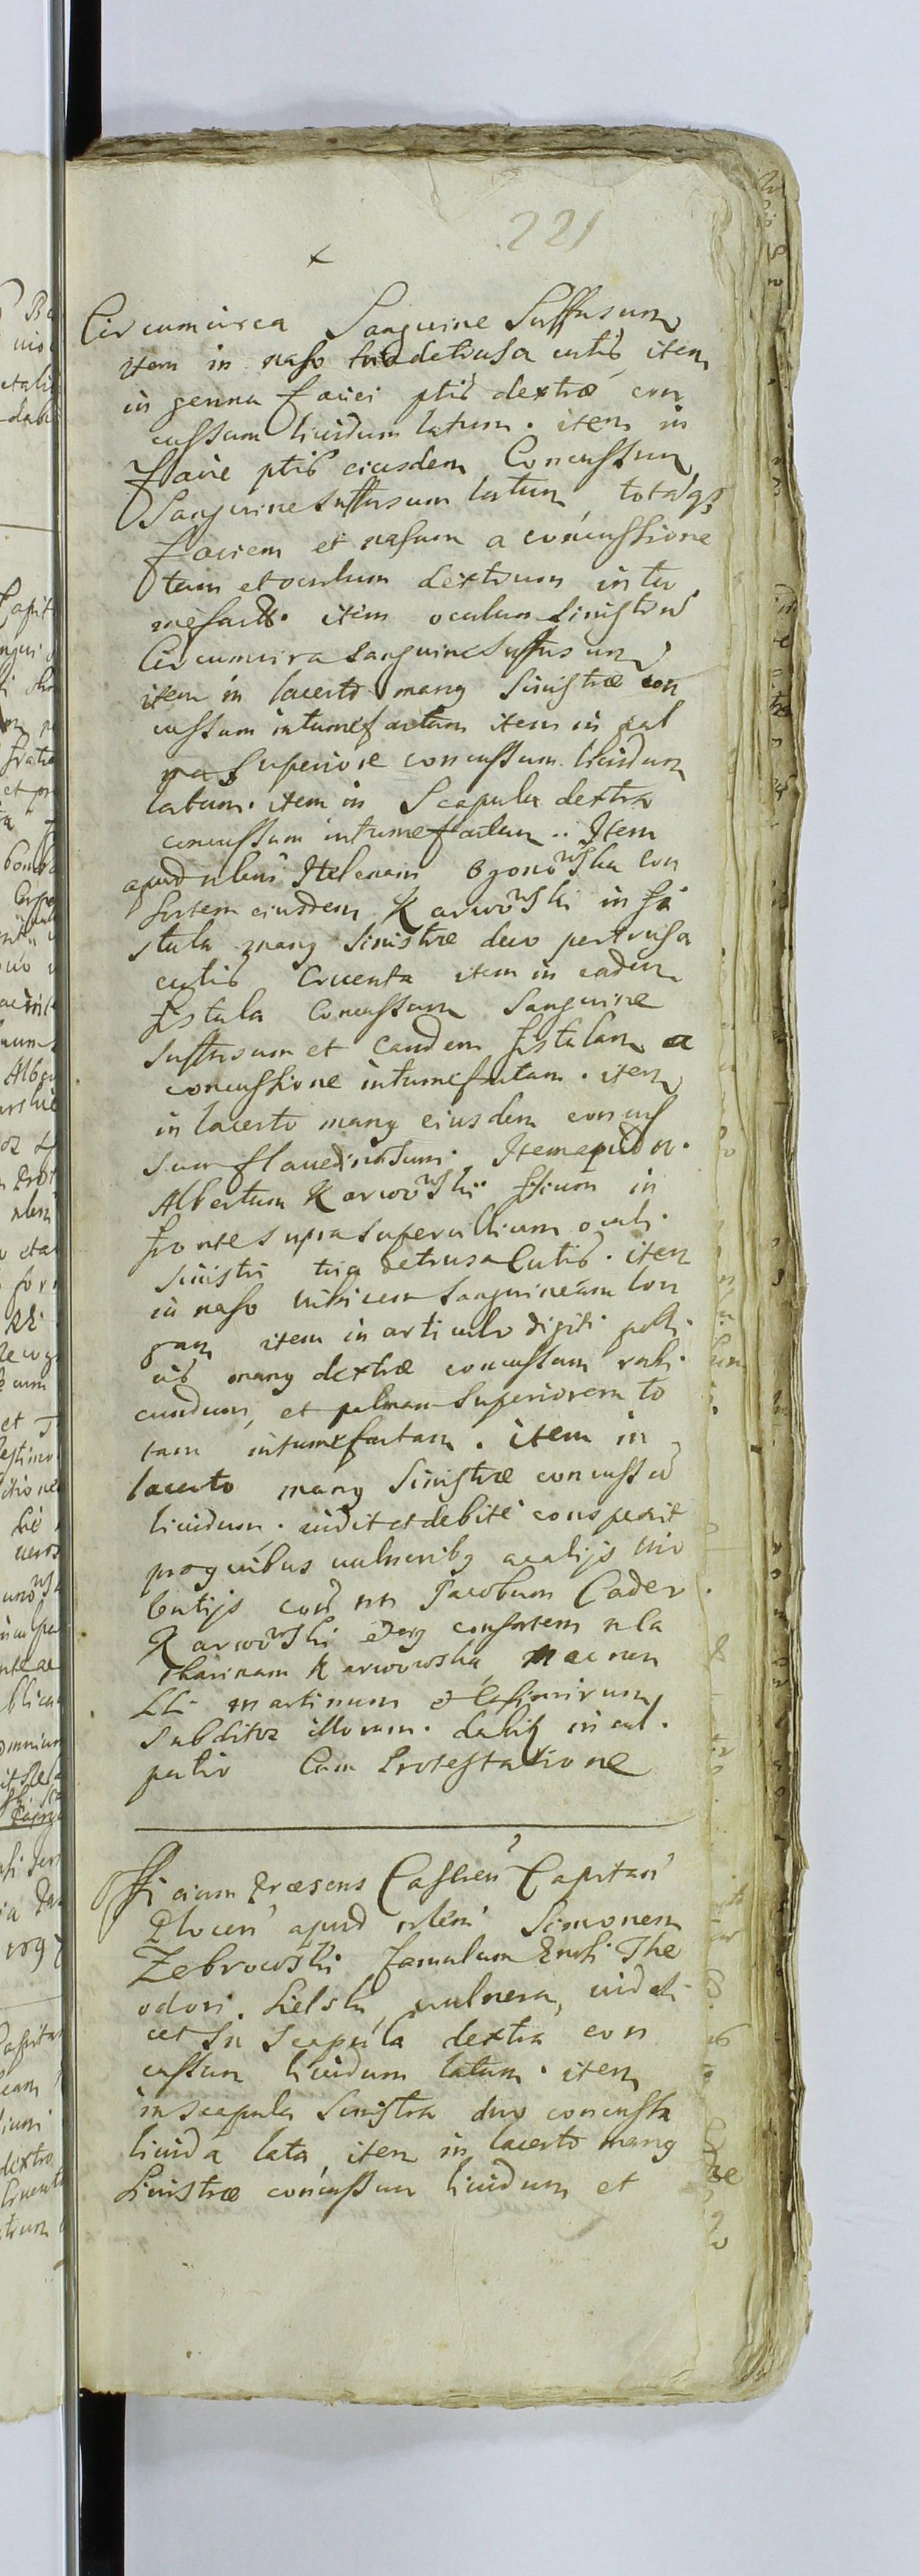 221
x
Circumcirca Sanguine Suffusum
item in naso tria detrusa cutis, item
in genna faciei ptis dextræ con
cussum liuidum latum. item in
facie ptis eiusdem Concussum
Sanguine suffusum latum, totaqз
faciem et nasum a concussione
tam et oculum dextrum intu
mefact. item oculum sinistru
Circumcirca sanguine suffusum
item in lacerto manq sinistræ con
cussum intumefactum item in pal
ma superiore concussum liuidum
latum. item in Scapula dextra
concussum intumefactum.. Item
apud nlem Helenam Ogonowska con
sortem eiusdem Karwowski in fi
stula manq sinistræ duo pertrusa
cutis Cruenta item in eadem
fistula Concussum Sanguine
suffusum et eandem fistulam a
concussione intumefactam. item
in lacerto manq eiusdem concus
sum flauedinosum. Item apud n.
Albertum Karwowski ffium in
fronte supra supercilium oculi
sinistri tria detrusa Cutis. item
in naso uibicem sanguineam lon
gam item in articulo digiti polli
cis manq dextræ concussum rubi
cundum, et palmam superiorem to
tam intumefactam. item in
lacerto manq sinistræ concussu
liuidum. uidit et debite conspexit
pro quibus uulneribq ac alijs
butijs nn Jacobum
Karwowski consortem
tharinam Karwowska, nec non
LL. martinum et
subditos illorum. in cul.
patio Cum Protestatione
ffcium Præsens Castren Capitan
Plocen apud nlem Simonem
Zebrowski famulum The
odori. Lielski, uulnera, uideli
cet in scapula dextra con
cussum liuidum latum. item
in scapula sinistra duo concussa
liuida lata, item in lacerto manq
sinistræ concussum liuidum et